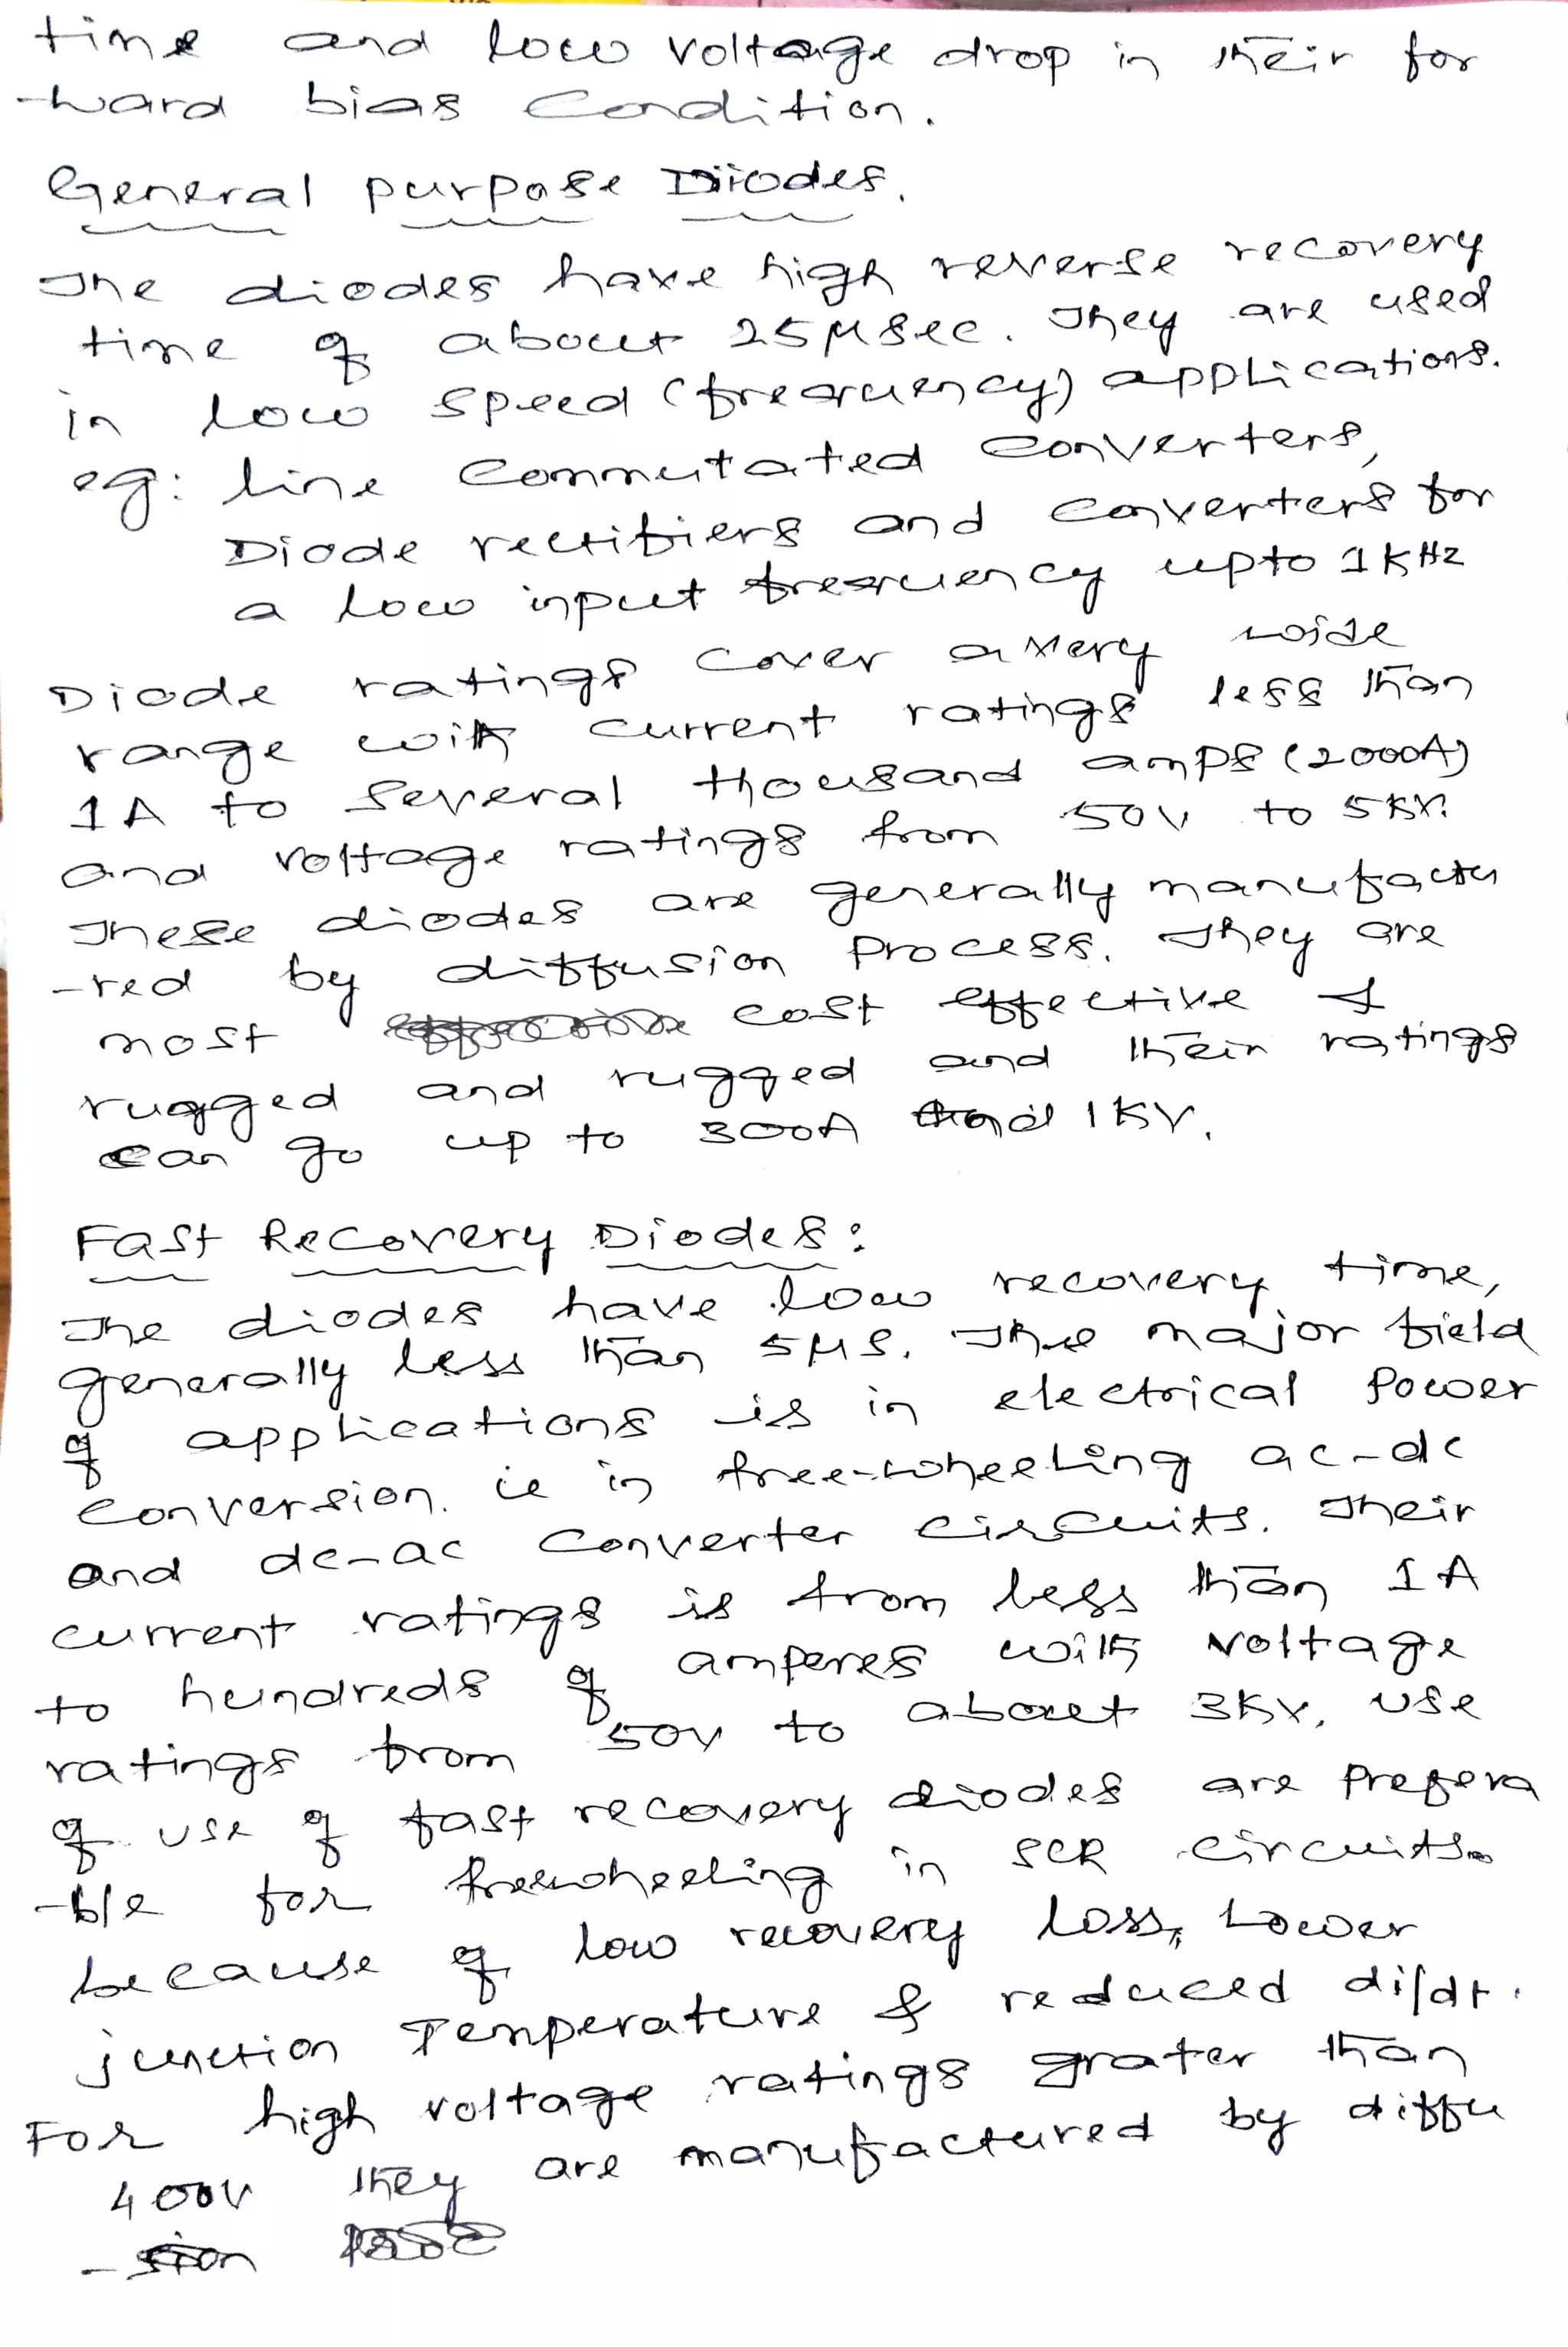 time and low voltage drop in their for
-ward bias condition.
General purpose Diodes.
The diodes have high reverse recovery
time of about 25 μsec. They are used
in low speed (frequency) applications.
eg: line commutated converters,
Diode rectifiers and converters for
a low input frequency upto 1KHz
Diode ratings cover a very wide
range with current ratings less than
1A to several thousand amps (2000A)
and voltage ratings from 50V to 5KV.
These diodes are generally manufactu
-red by diffusion process. They are
most cost effective &
rugged and rugged and their ratings
can go up to 300A and 1KV.
Fast Recovery Diodes:
The diodes have low recovery time,
generally less than 5μs. The major field
of applications is in electrical power
conversion. ie in free-wheeling ac-dc
and dc-ac converter circuits. Their
current ratings is from less than 1A
to hundreds of amperes with voltage
ratings from 50V to about 3KV. Use
of use of fast recovery diodes are prefera
-ble for freewheeling in SCR circuits
because of low recovery loss, Lower
junction Temperature & reduced di/dt.
For high voltage ratings grater than
400V they are manufactured by diffu
-sion